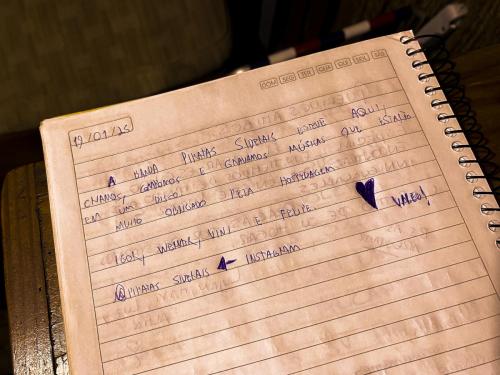 DOM SEG TER QUA QUI SEX SÁB
19/01/25
A BANDA PIRATAS SIDERAIS ESTEVE AQUI,
CRIAMOS, GRAVAMOS MÚSICAS QUE ESTARÃO
EM UM DISCO.
MUITO OBRIGADO PELA HOSPEDAGEM
IGOR, WENDER, VINI E FELIPE. VALEU!
@PIRATAS SIDERAIS ← INSTAGRAM